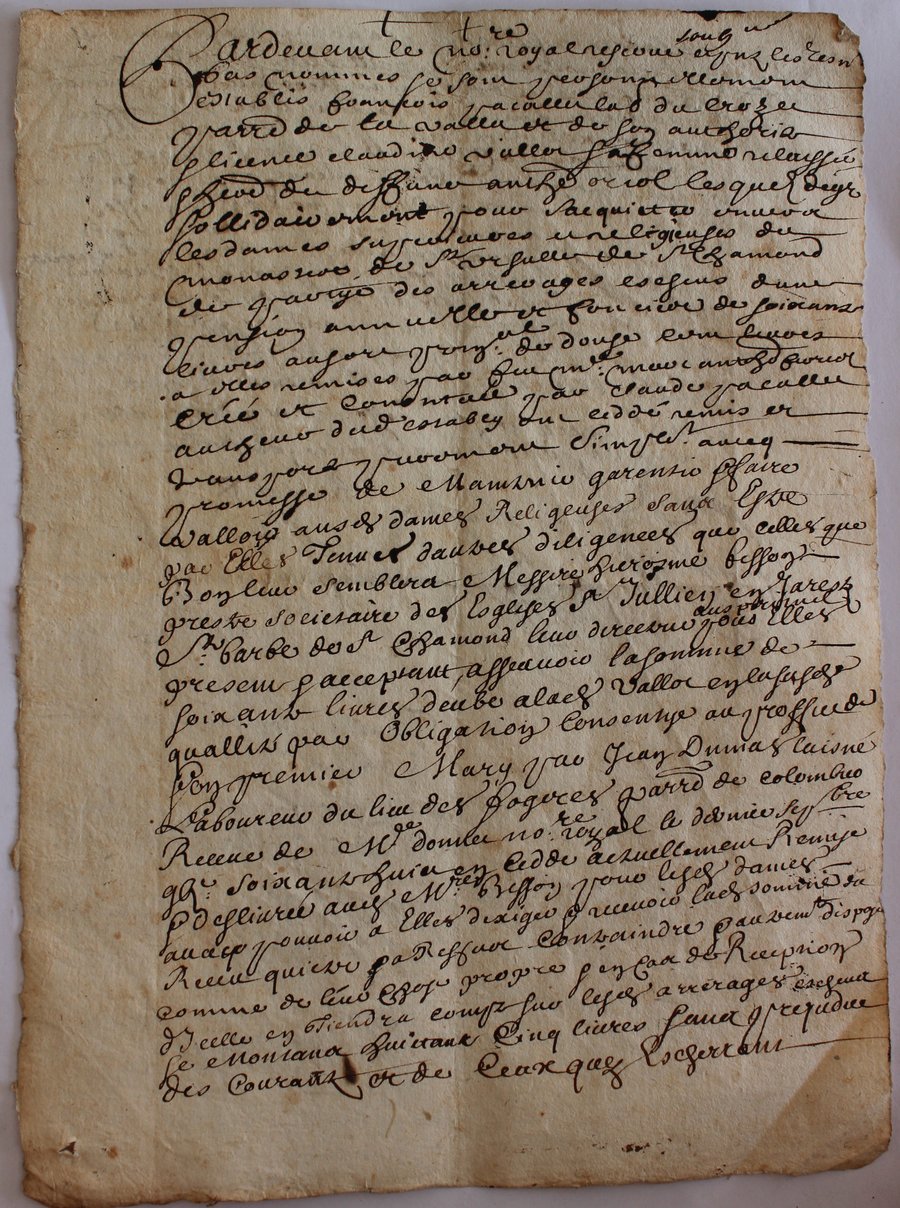 soub.ne
Pardevant le no.re royal rescone et pnz les tesm
bas nommes se sont personnellement
establis François pacallet lad du Crozet
parr.d de la valla et de son authorité
& licence claudine vallot sa femme relaissée
& herod de deffunt anth.e oriol lesquelz de gr
sollidairement pour sacquitter envers
les dames superieures et religieuses du
monastere de S.te Ursulle de S.t Chamond
de partye des arrerages escheus dune
pension annuelle et fonciere de soixante
livres au sort prin.al de douze cent livres
a elles remises par feu m.re marc anth.d oriol
créé et constituée par claude pacallet
autheur dud estably ont ceddé remis et
transporté purement simpl.t avecq
promesse de Maintenir garentir & faire
valloir ausd dames Religieuses sans Estre
par Elles Tenues dautres diligences que celles que
Bon leur semblera Messire hierosme besson
prestre societaire des Esglises S.t Jullien en Jarest
S.te barbe de S.t Chamond leur directeur pour Elles
present & acceptant, asseavoir la somme de
soixante livres deube alad Vallot en lasusd
quallité par Obligation Consentye au proffit de
son premier Mary par Jean Dumas laisné
Laboureur du lieu des fogeres parr.d de colombier
Receue de M.e donnet no.re royal le dernier sep.bre
soixante huit en cedde actuellement Remise
& deslivrée aud M.re Besson pour lesd dames
avecq pouvoir a Elles dexiger & recevoir lad somme du
Receu quitter & a Ressort Contraindre & autrem.t disposer
comme de leur chose propre & en cas de Reception
dicelle en Tiendra compte sur lesd arrerages escheus
se Montant huictante Cinq livres sans prejudice
des Courantz et de Ceux quy Escherront